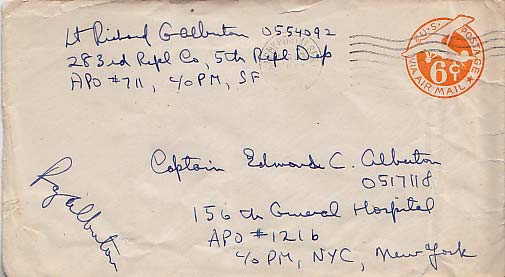 Lt Richard G Alberton 0554092
283rd Repl Co, 5th Repl Dep
APO #711, c/o PM, SF
U.S. POSTAGE
6¢
VIA AIR MAIL
Captain Edmonde C. Alberton
0517118
156th General Hospital
APO #1216
c/o PM, NYC, New York
RGAlberton